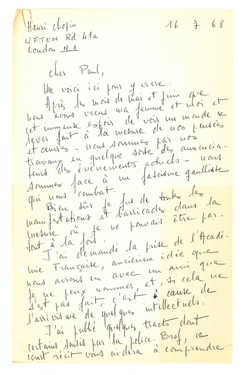 Henri Chopin 16 7 68
4 FTON Rd 41a
London N 1
Cher Paul,
Me voici ici pour y vivre.
Après les mois de mai et juin que
nous avons vécus ma femme et moi et
cet immense espoir de voir un monde se
lever fait à la mesure de nos pensées
et œuvres - nous sommes par nos
travaux en quelque sorte des annoncia-
teurs des événements actuels - nous
sommes face à un fascisme gaulliste
qui nous combat.
Bien sûr je fus de toutes les
manifestations et barricades dans la
mesure où je ne pouvais être par-
tout à la fois.
J'ai demandé la prise de l'Acadé-
mie Française, ancienne idée que
nous avions eu avec un ami que
je ne peux nommer, et si cela ne
s'est pas fait, c'est à cause de
l'arrivisme de quelques intellectuels.
J'ai publié quelques tracts dont
certains saisis par la police. Bref, ce
court récit vous aidera à comprendre